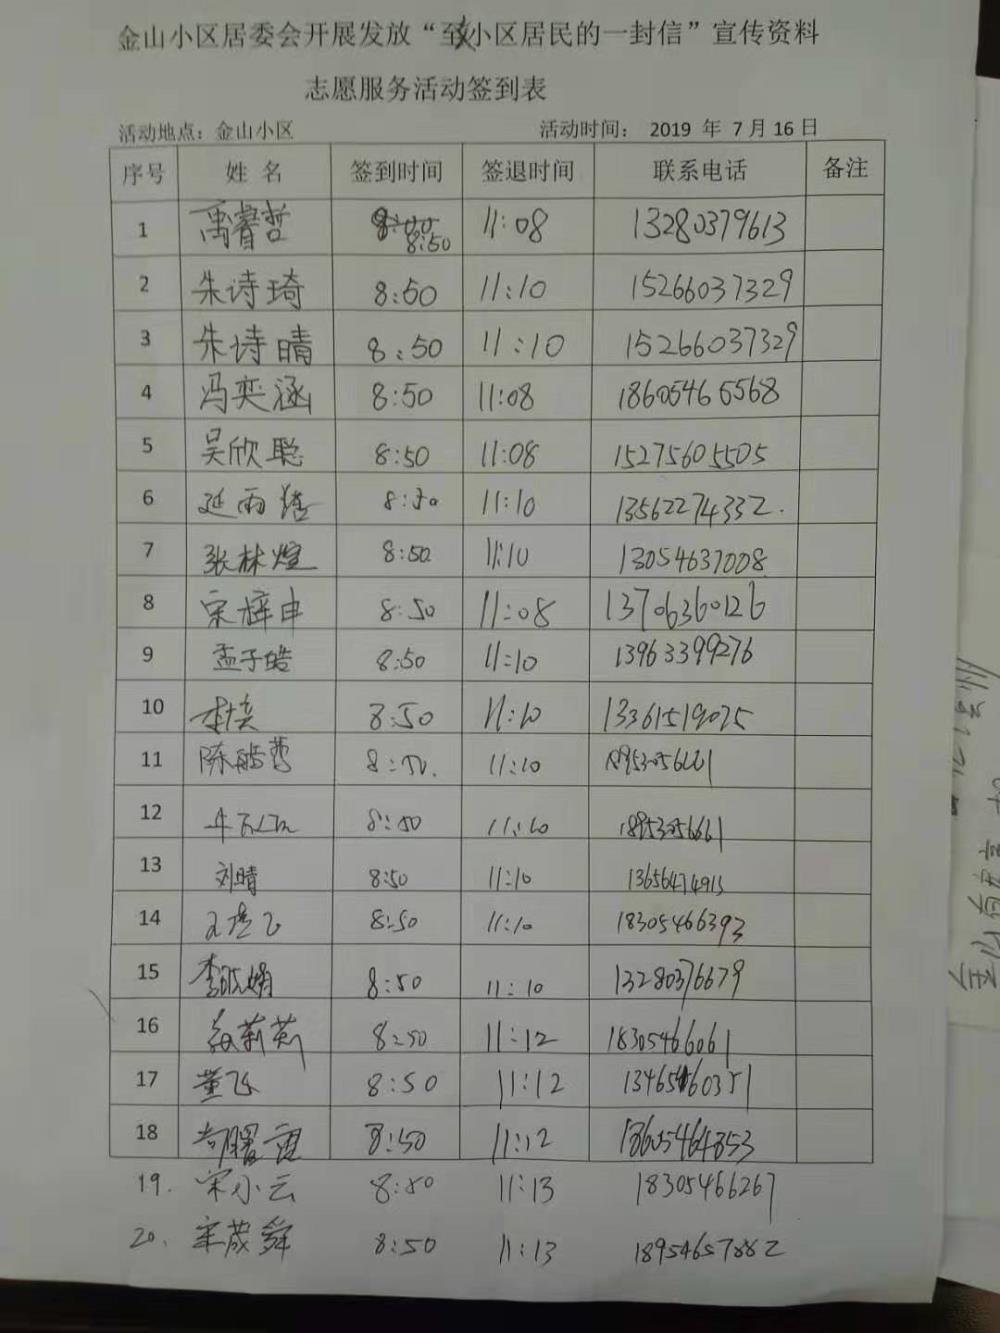 金山小区居委会开展发放“致小区居民的一封信”宣传资料
志愿服务活动签到表
活动地点：金山小区 活动时间： 2019 年 7 月 16 日
序号 姓 名 签到时间 签退时间 联系电话 备注
1 禹睿哲 8:50 11:08 13280379613
2 朱诗琦 8:50 11:10 15266037329
3 朱诗晴 8:50 11:10 15266037329
4 冯奕涵 8:50 11:08 18605465568
5 吴欣聪 8:50 11:08 15275605505
6 延雨 8:50 11:10 13562274332.
7 张林煊 8:50 11:10 13054637008
8 宋梓申 8:50 11:08 13706360126
9 孟子皓 8:50 11:10 13963399276
10 8:50 11:10 13361519025
11 陈皓哲 8:50. 11:10 18953056661
12 8:50 11:10 18953056661
13 刘晴 8:50 11:10 13656474913
14 8:50 11:10 18305466393
15 李 娟 8:50 11:10 13280376679
16 莉莉 8:50 11:12 18305466061
17 董飞 8:50 11:12 13465460351
18 曙雷 8:50 11:12 18605464853
19. 宋小云 8:50 11:13 18305466267
20. 宋茂舜 8:50 11:13 18954657882